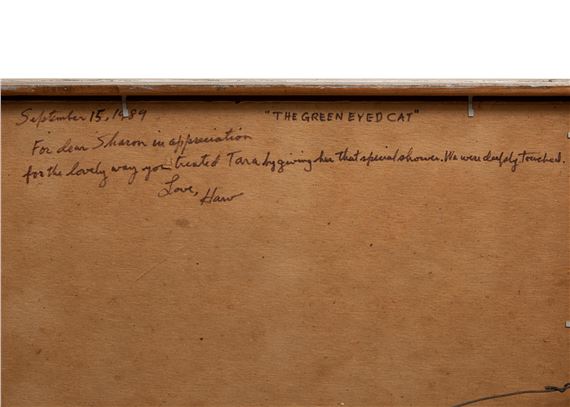 September 15, 1989
"THE GREEN EYED CAT"
For dear Sharon in appreciation
for the lovely way you treated Tara by giving her that special shower. We were deeply touched.
Love,
Harv